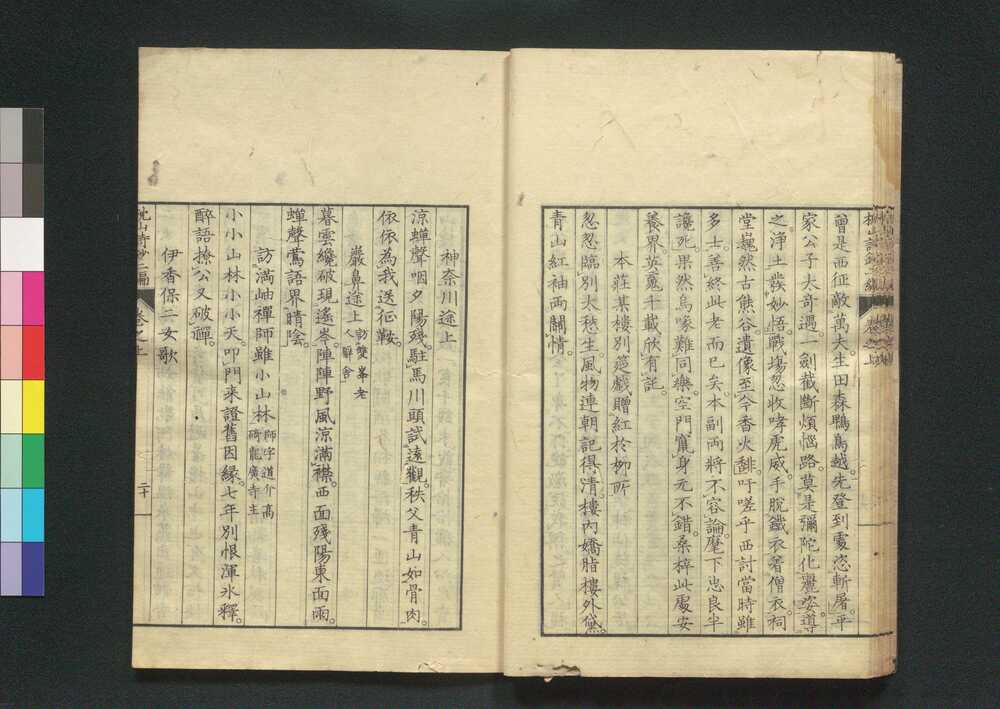 曾是西征敵萬夫。生田森鴨鳥越。先登到處恣斬屠。平
家公子大奇遇。一劍截斷煩惱路。莫是彌陀化豔姿。導
之淨土發妙悟。戰場忽收哮虎威。手脫鐵衣著僧衣。祠
堂巍然古熊谷。遺像至今香火馡。吁嗟乎西討當時雖
多士。善終此老而已矣。本副兩將不容論。麾下忠良半
讒死。果然烏喙難同樂。空門竄身元不錯。桑梓此處安
養界。英䰟千載欣有託。
本莊某樓別筵戲贈紅於柳所
怱怱臨別太愁生。風物連朝記得清。樓內嬌脂樓外黛。
青山紅袖兩關情。
神奈川途上
涼蟬聲咽夕陽殘。駐馬川頭試遠觀。秩父青山如骨肉。
依依為我送征鞍。
巖鼻途上訪雙峯老人僻舍
暮雲纔破現遙岑。陣陣野風涼滿襟。西面殘陽東面雨。
蟬聲鶯語界晴陰。
訪滿岫禪師雖小山林師字道介高碕龍廣寺主
小小山林小小天。叩門來證舊因緣。七年別恨渾氷釋。
醉語撩公又破禪。
伊香保二女歌
枕山詩鈔二編
卷之上
二十